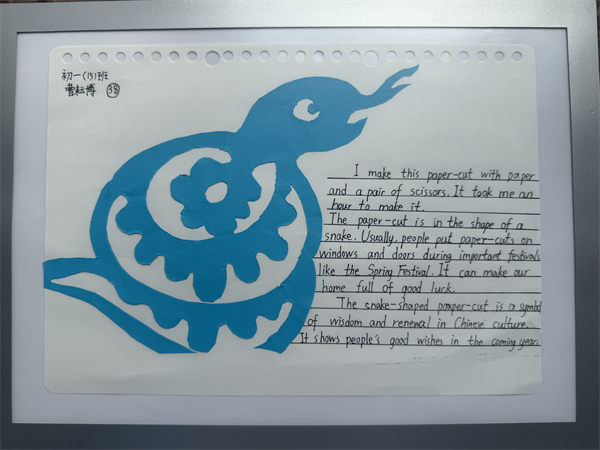 初一(15)班
曹耘博 38
I make this paper-cut with paper
and a pair of scissors. It took me an
hour to make it.
The paper-cut is in the shape of a
snake. Usually, people put paper-cuts on
windows and doors during important festivals
like the Spring Festival. It can make our
home full of good luck.
The snake-shaped paper-cut is a symbol
of wisdom and renewal in Chinese culture.
It shows people's good wishes in the coming year.